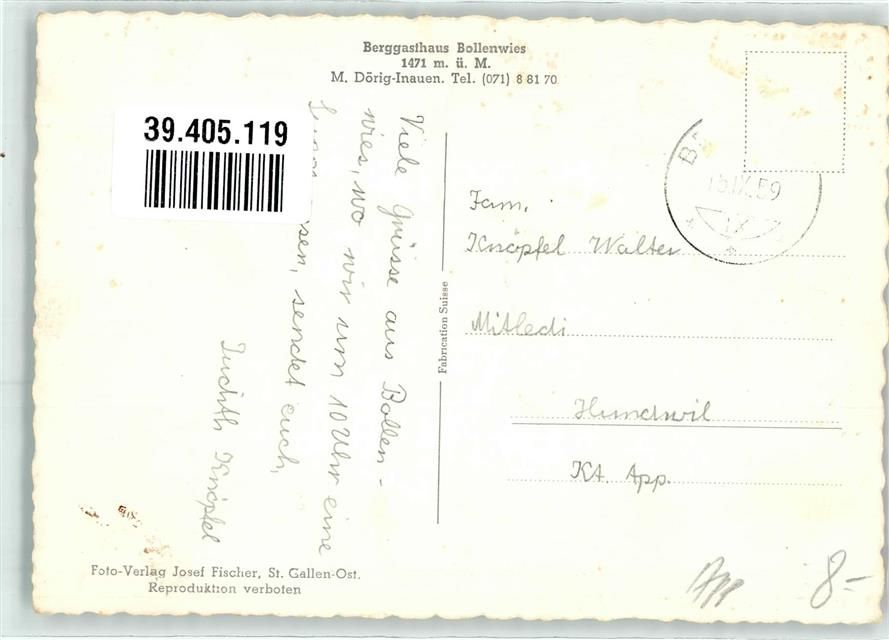 Berggasthaus Bollenwies
1471 m. ü. M.
M. Dörig-Inauen. Tel. (071) 8 81 70
39.405.119
Viele Grüsse aus Bollen-
wies, wo wir um 10 Uhr eine
sen, sendet euch,
Judith Knöpfel
Fabrication Suisse
15.IX.59
IX
Fam.
Knöpfel Walter
Mitledi
Hundwil
Kt. App.
Foto-Verlag Josef Fischer, St. Gallen-Ost.
Reproduktion verboten
App
8.-